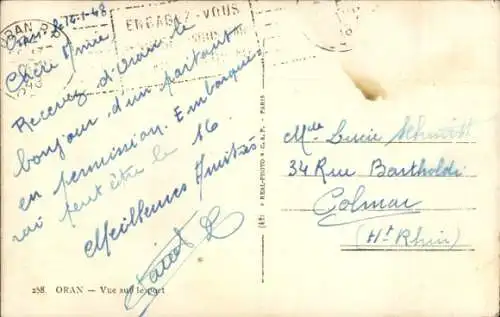 ORAN
ENGAGEZ-VOUS
Oran le 14-1-48
Chère Amie
Recevez d'Oran le
bonjour d'un partant
en permission. Embarque-
rai peut être le 16
Meilleures Amitiés
258. ORAN — Vue sur le port
"REAL-PHOTO" C.A.P. PARIS
Mlle Lucie Schmidt
34 Rue Bartholdi
Colmar
(Ht Rhin)